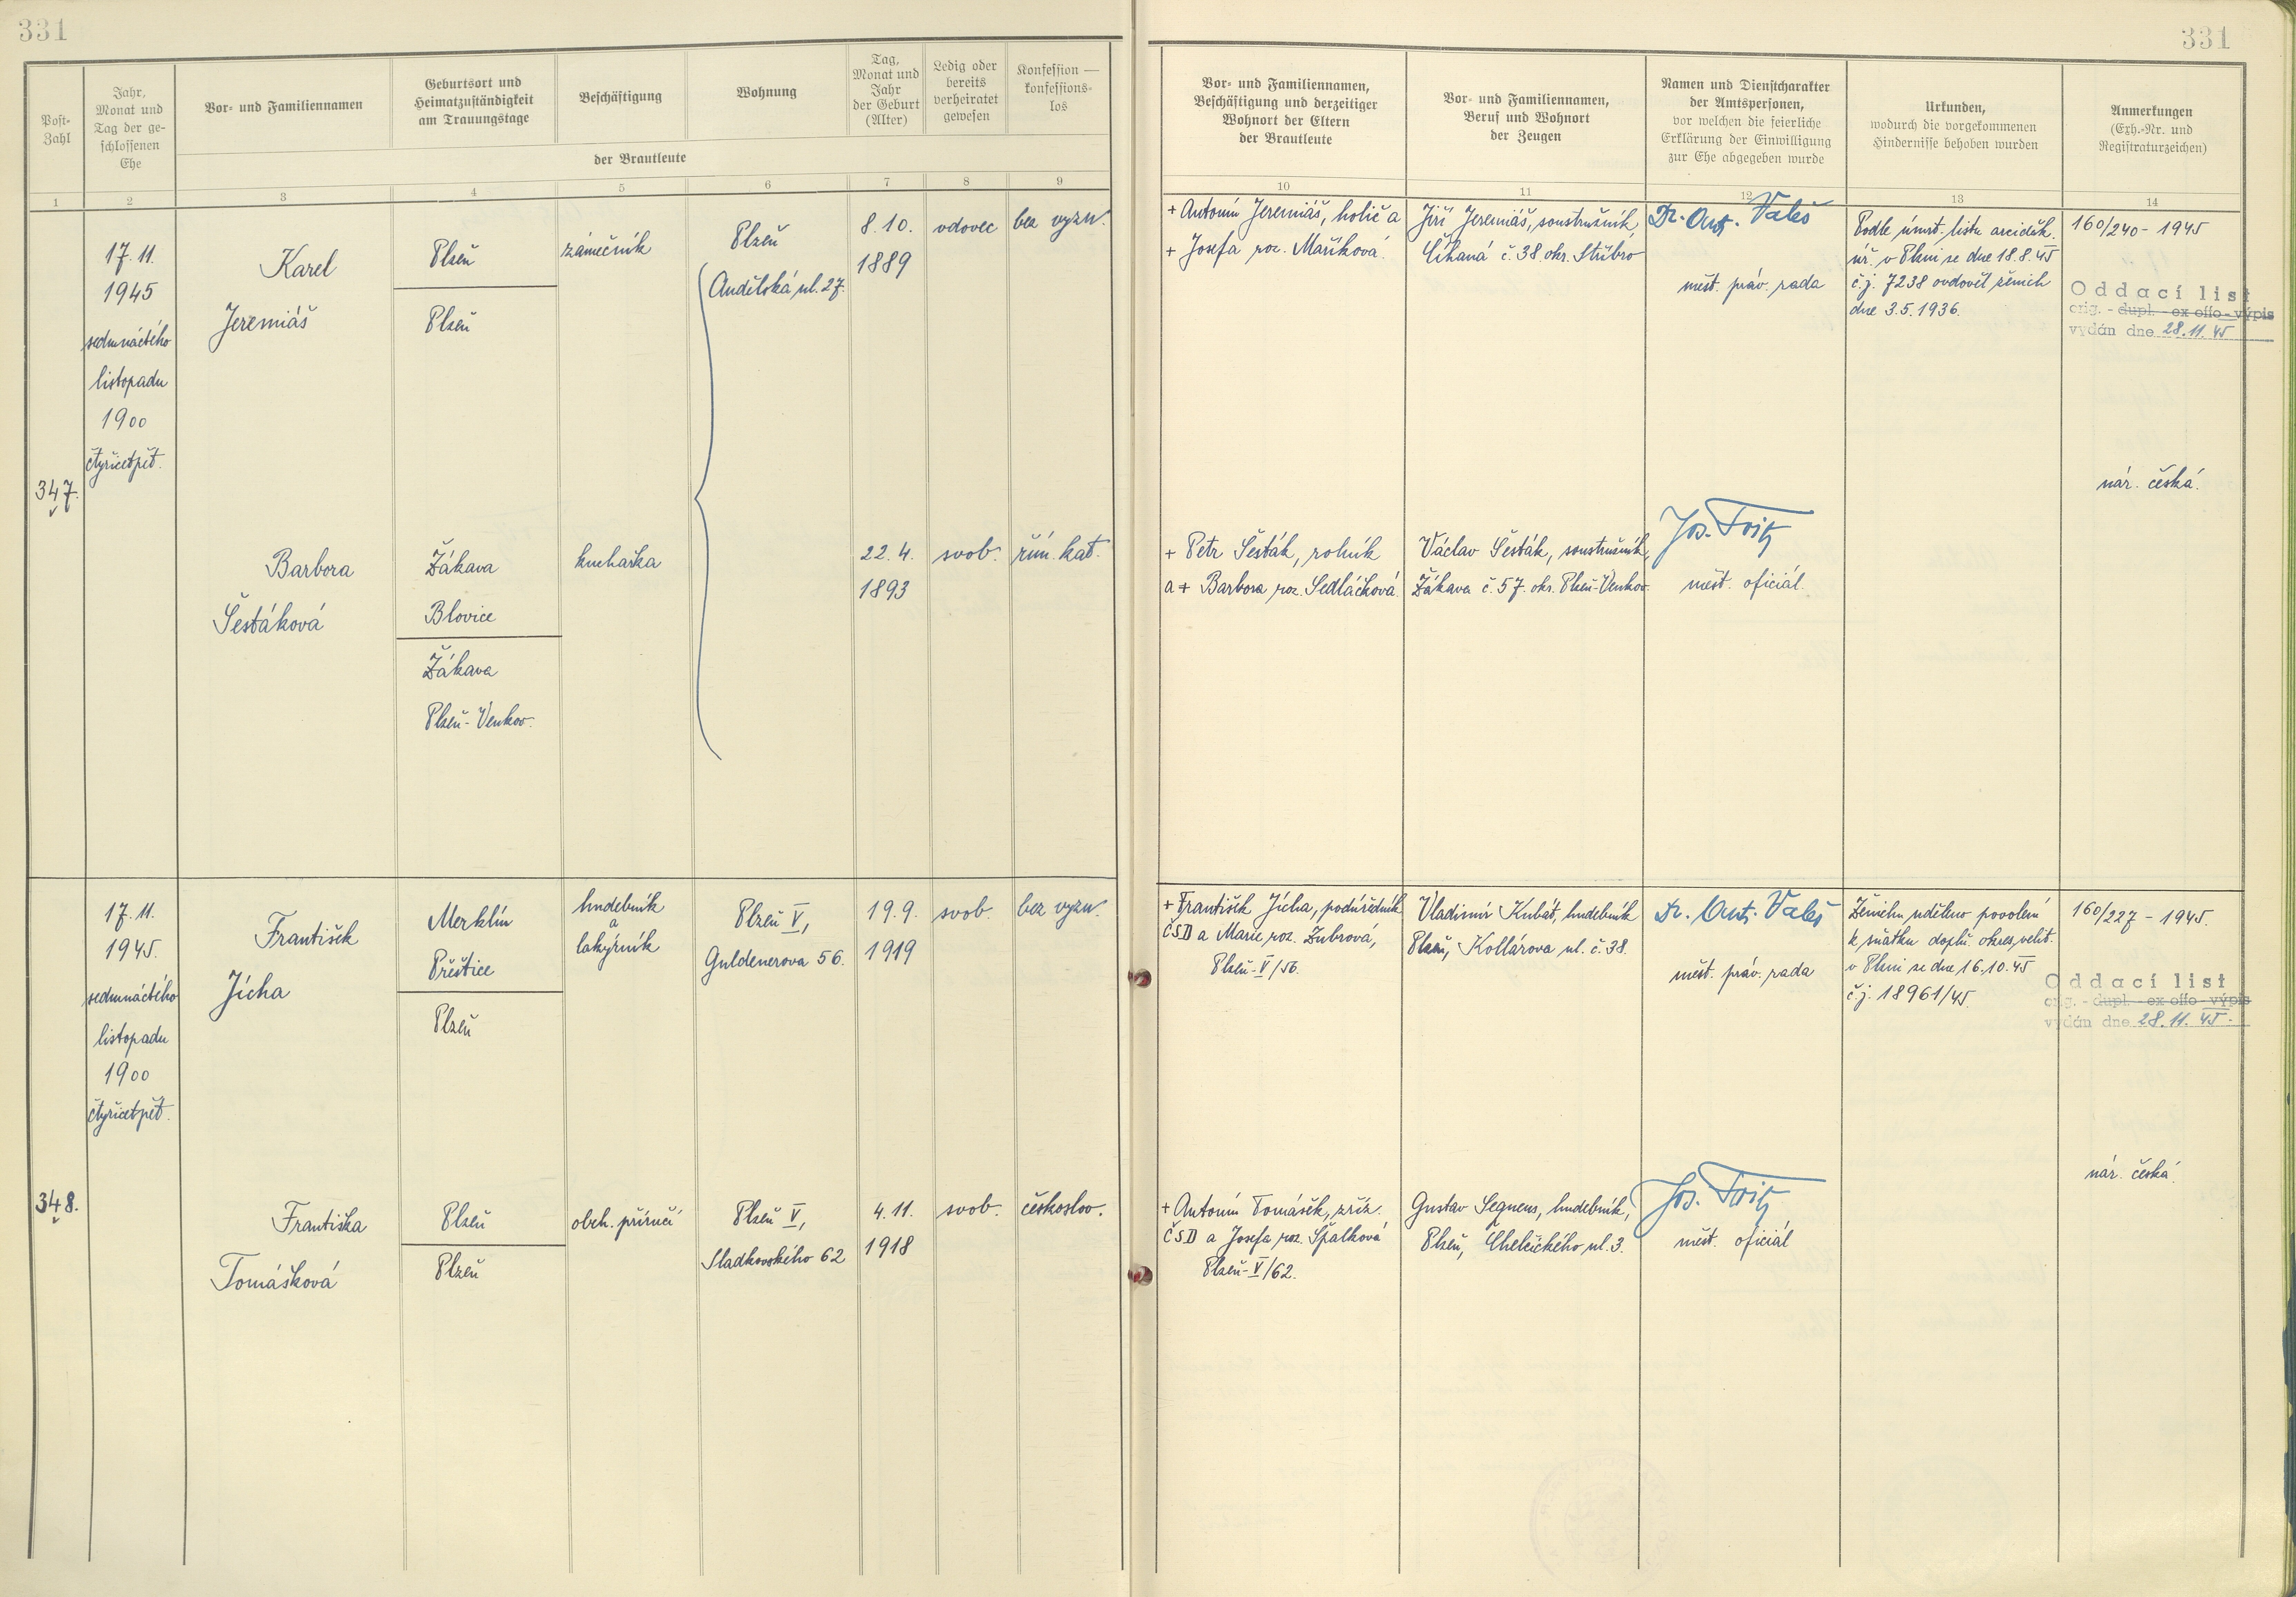 331
331
Post-
Zahl
Jahr,
Monat und
Tag der ge-
schlossenen
Ehe
Vor- und Familiennamen
Geburtsort und
Heimatzuständigkeit
am Trauungstage
Beschäftigung
Wohnung
Tag,
Monat und
Jahr
der Geburt
(Alter)
Ledig oder
bereits
verheiratet
gewesen
Konfession —
konfessions-
los
der Brautleute
Vor- und Familiennamen,
Beschäftigung und derzeitiger
Wohnort der Eltern
der Brautleute
Vor- und Familiennamen,
Beruf und Wohnort
der Zeugen
Namen und Dienstcharakter
der Amtspersonen,
vor welchen die feierliche
Erklärung der Einwilligung
zur Ehe abgegeben wurde
Urkunden,
wodurch die vorgekommenen
Hindernisse behoben wurden
Anmerkungen
(Exh.-Nr. und
Registraturzeichen)
1 2 3 4 5 6 7 8 9 10 11 12 13 14
347.
17. 11.
1945
sedmnáctého
listopadu
1900
čtyřicetpět.
Karel
Jeremiáš
Plzeň
Plzeň
zámečník
Plzeň
Andělská ul. 27.
8. 10.
1889
vdovec
bez vyzn.
+ Antonín Jeremiáš, holič a
+ Josefa roz. Maříková.
Jiří Jeremiáš, soustružník,
Číhaná č. 38. okr. Stříbro
Dr. Ant. Valeš
měst. práv. rada
Podle úmrt. listu arciděk.
úř. v Plzni se dne 18. 8. 45
č. j. 7238 ovdověl ženich
dne 3. 5. 1936.
160/240 - 1945
Oddací list
orig. - dupl. - ex offo - výpis
vydán dne 28. 11. 45
nár. česká.
Barbora
Šestáková
Žákava
Blovice
Žákava
Plzeň-Venkov.
kuchařka
22. 4.
1893
svob.
řím. kat.
+ Petr Šesták, rolník
a + Barbora roz. Sedláčková.
Václav Šesták, soustružník,
Žákava č. 57. okr. Plzeň-Venkov.
Jos. Fritz
měst. oficiál.
348.
17. 11.
1945.
sedmnáctého
listopadu
1900
čtyřicetpět.
František
Jícha
Merklín
Přeštice
Plzeň
hudebník
a
lakýrník
Plzeň V,
Guldenerova 56.
19. 9.
1919
svob.
bez vyzn.
+ František Jícha, podúředník
ČSD a Marie roz. Zubrová,
Plzeň-V/56.
Vladimír Kubát, hudebník
Plzeň, Kollárova ul. č. 38.
Dr. Ant. Valeš
měst. práv. rada
Ženichu uděleno povolení
k sňatku doplň. okres. velit.
v Plzni se dne 16. 10. 45
č. j. 18961/45.
160/227 - 1945.
Oddací list
orig. - dupl. - ex offo - výpis
vydán dne 28. 11. 45.
nár. česká.
Františka
Tomášková
Plzeň
Plzeň
obch. příručí
Plzeň V,
Sladkovského 62
4. 11.
1918
svob.
českoslov.
+ Antonín Tomášek, zříz.
ČSD a Josefa roz. Špalková
Plzeň-V/62.
Gustav Segnens, hudebník,
Plzeň, Chelčického ul. 3.
Jos. Fritz
měst. oficiál